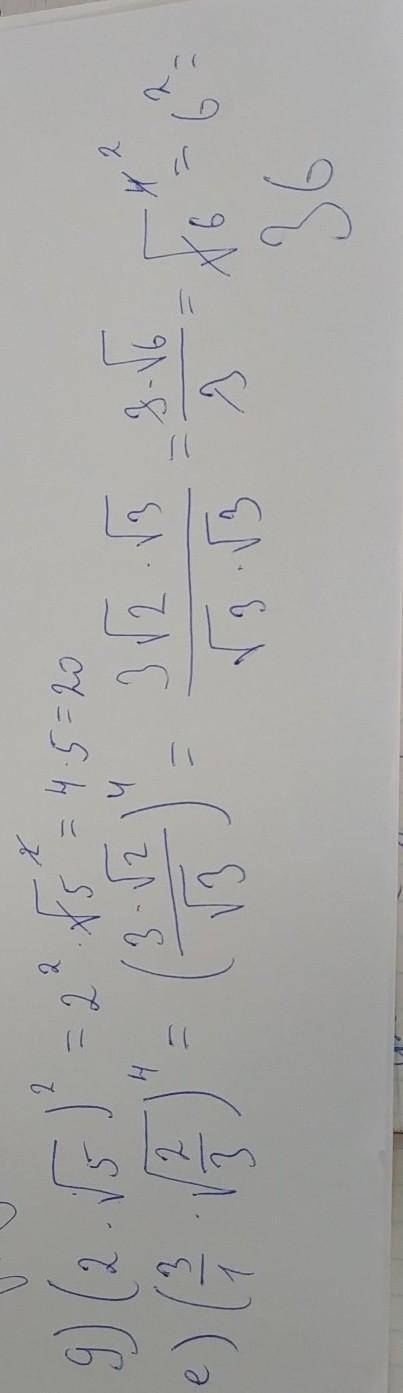 g) (2 · √5)² = 2² · √5² = 4 · 5 = 20
e) (3/1 · √(2/3))⁴ = ((3 · √2)/√3)⁴ = (3√2 · √3)/(√3 · √3) = (3 · √6)/3 = √6⁴ = 6² =
36